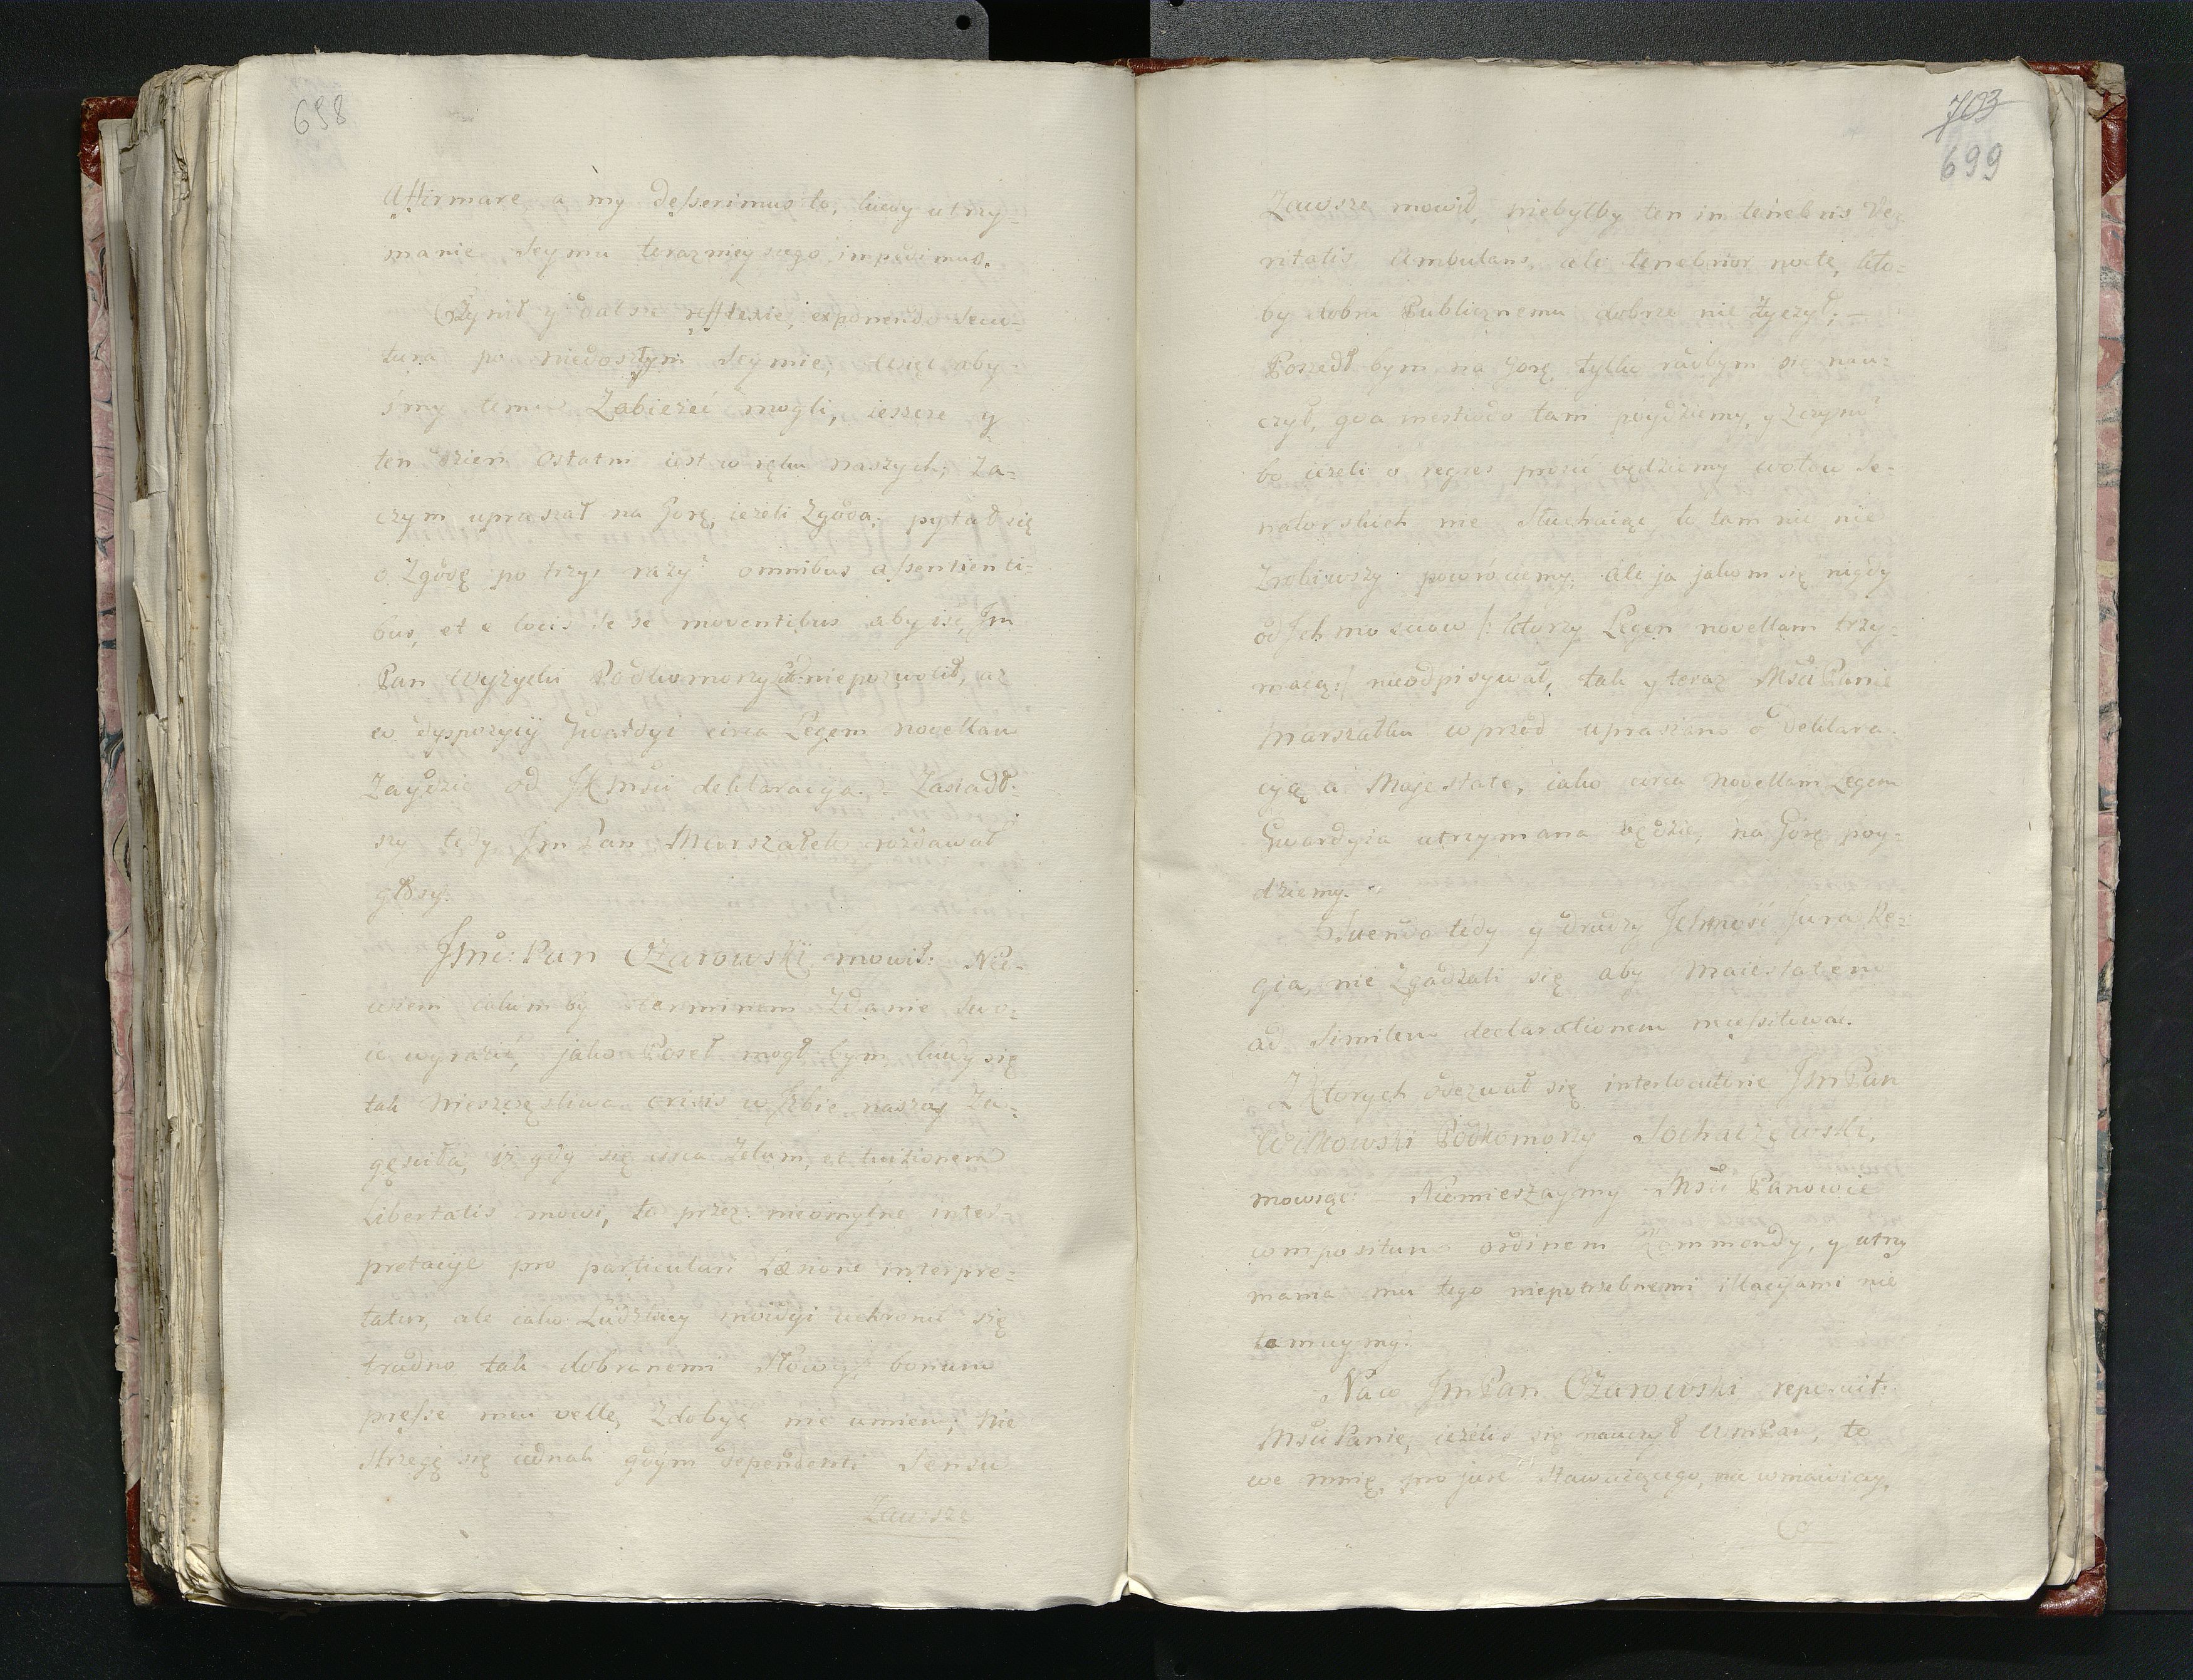 698
Affirmare a my desserimus to, kiedy utrzy-
manie Seymu teraznieyszego impedimus.
Czynił y dalsze reflexie, exponendo secu-
tura po niedoszłym Seymie, więc aby-
śmy temu Zabieżeć mogli, ieszcze y
ten dzień ostatni iest w ręku naszych; Za-
czym upraszał na Gorę, ieżeli Zgoda: pytał się
o Zgodę po trzy razy: omnibus assentienti-
bus, et e locis se se moventibus aby iść, Jm
Pan Wyżycki Podkomorzy niepozwolił, aż
w dyspozycyi Gwardyi circa Legem novellam
Zaydzie od JKMści deklaracya. Zasiadł-
szy tedy Jm Pan Marszałek rozdawał
głosy.
Jmć: Pan Ożarowski mowił: Nie-
wiem iakimby terminem Zdanie swo-
ie wyrazić, jako Poseł mogł bym, kiedy się
tak nieszczęśliwa crisis w Jzbie naszey Za-
gęściła, iż gdy się circa Zelum, et tuitionem
Libertatis mowi, to przez nieomylne inter-
pretacye pro particulari Læsione interpre-
tatur, ale iako Ludzkiey inwidyi uchronić się
trudno tak dobranemi słowy, bonum
presse meu velle, Zdobyć nie umiem; nie
strzegę się iednak gdym dependenti sensu
Zawsze
703
699
Zawsze mowił, niebyłby ten in tenebris Ve-
ritatis Ambulans, ale tenebrior nocte, kto-
by dobru Publicznemu dobrze nie życzył; -
Poszedł bym na Gorę, tylko radbym się nau-
czył, qva methodo tam poydziemy, y Zczym?
bo ieżeli o regres prosić będziemy wotow Se-
natorskich nie słuchaiąc, to tam nic nie
Zrobiwszy powrociemy, Ale ja jakom się nigdy
od Jchmościow /: ktorzy Legem novellam trzy-
maią :/ nieodpisywał, tak y teraz Mści Panie
Marszałku wprzod upraszam o deklara-
cyą a Majestate, iako circa novellam Legem
Gwardyia utrzymana będzie, na Gorę poy-
dziemy.
Tuendo tedy y drudzy Ichmość Jura Re-
gia, nie Zgadzali się aby Maiestatem
ad similem declarationem necessitować.
Z Ktorych odezwał się interlocutorie Jm Pan
Wilkowski Podkomorzy Sochaczewski,
mowiąc: Niemieszaymy Mści Panowie
compositum ordinem Kommendy, y utrzy
mania mu tego niepotrzebnemi illacyami nie
tamuymy.
Na co Jm Pan Ożarowski reposuit:
Mści Panie, ieżeli się nauczył WmPan, to
we mnię, pro jure stawaiącego, nie wmawiay,